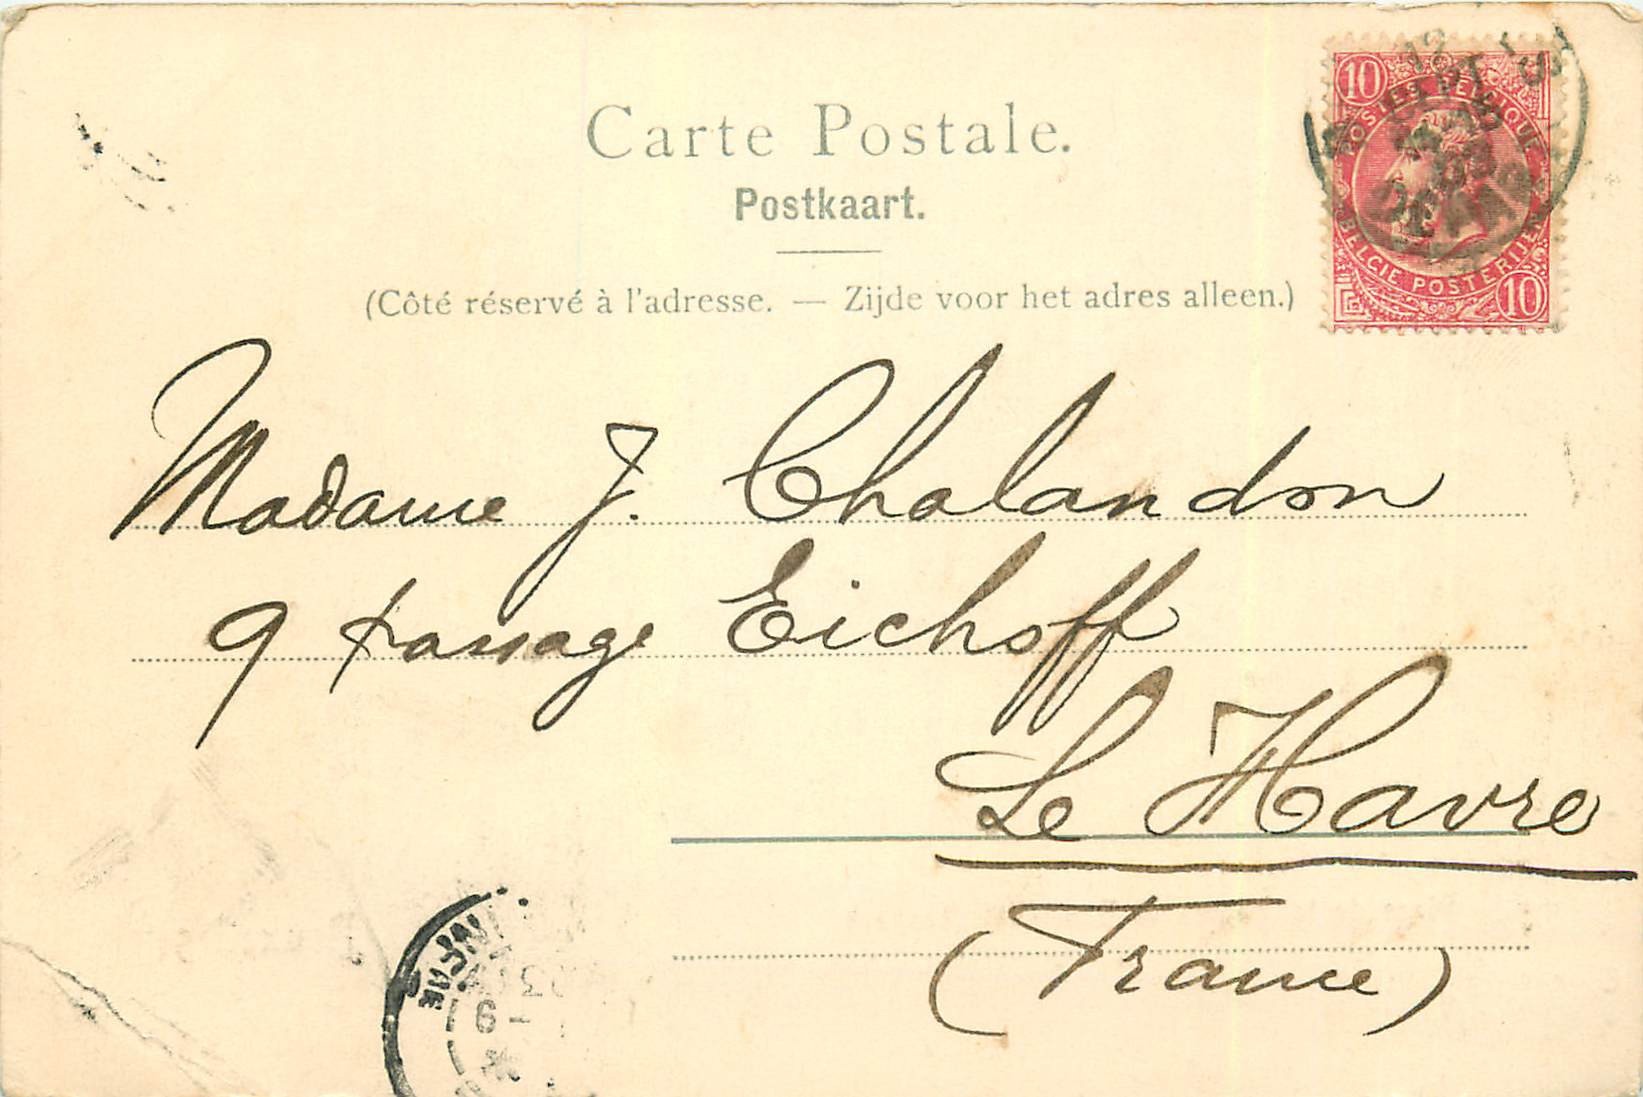 Carte Postale.
Postkaart.
(Côté réservé à l'adresse. — Zijde voor het adres alleen.)
10
POSTES BELGIQUE
BELGIE POSTERIJEN
10
Madame J. Chalandon
9 passage Eichoff
Le Havre
(France)